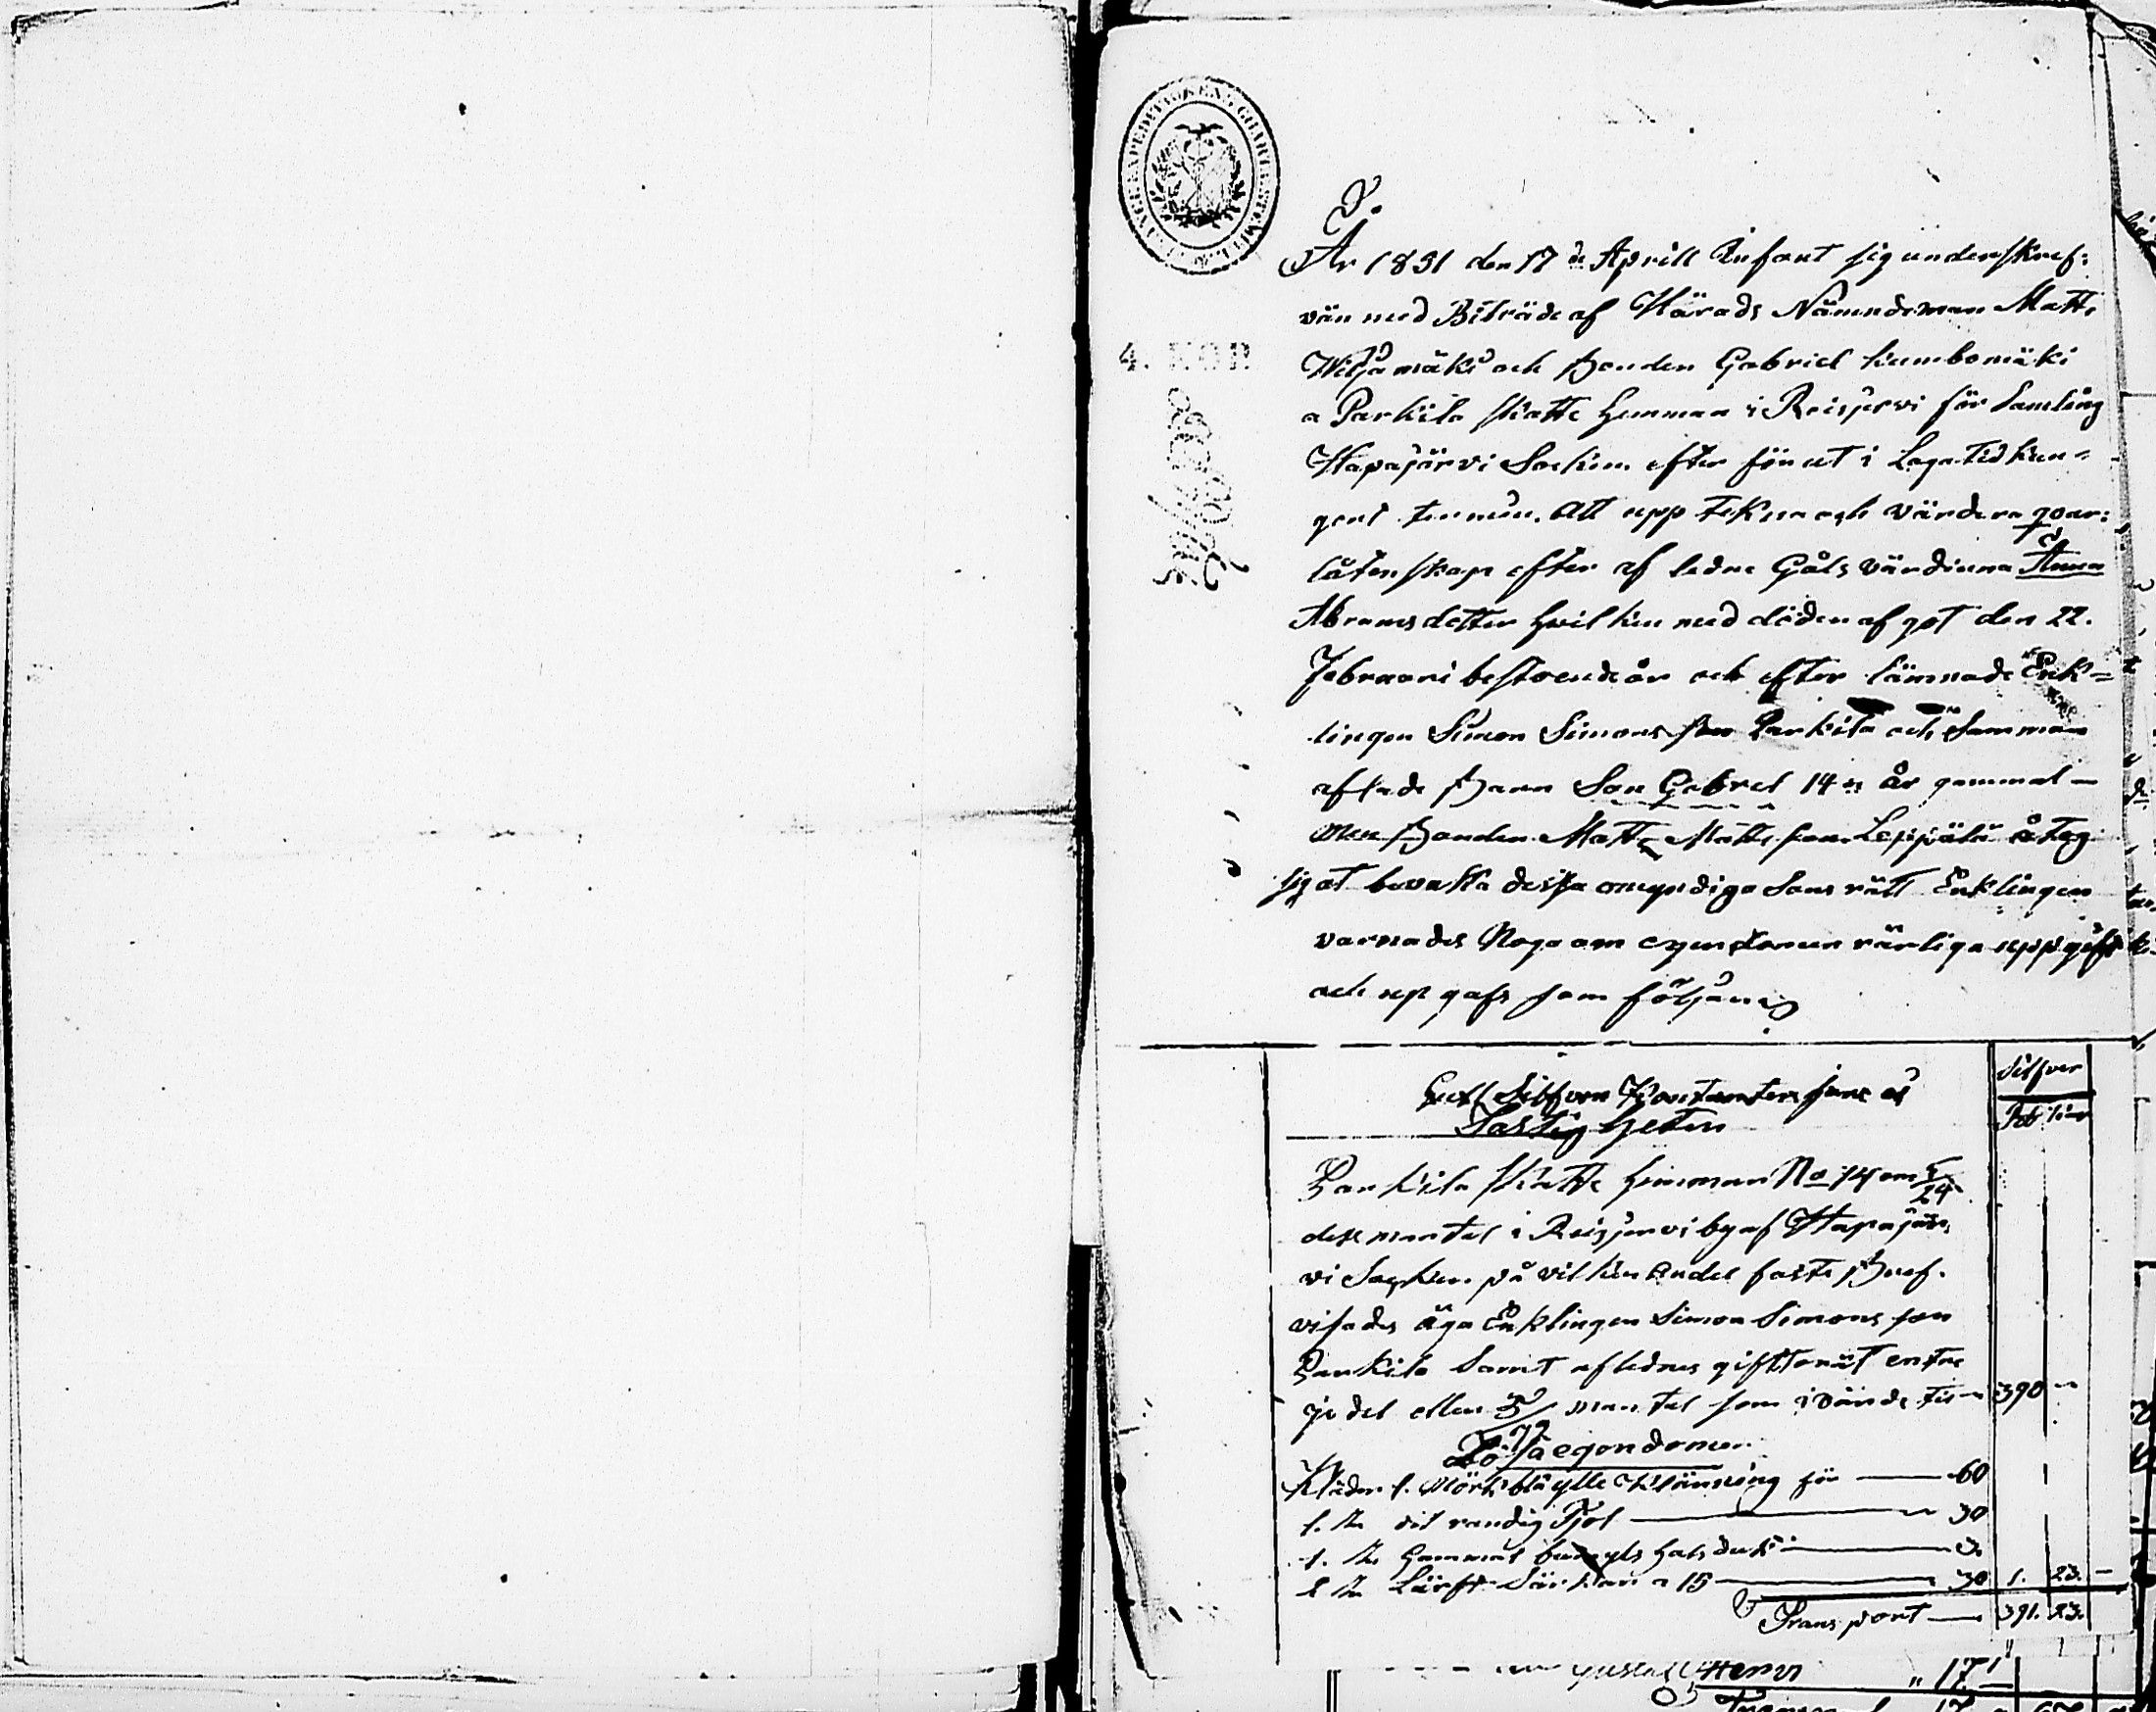 4. KOP.
År 1851 den 17 de Aprill Infant sig underskref:
vän med Biträde af Härads Nämndeman Matts
Wiljamäki och Bonden Gabriel Kumbomäki
a Parkila skatte Hemman i Reisjervi för samling
Hapajärvi Socken efter förut i Laga tid kun=
gent termin. Att upp tekna och värdera qvar:
låtenskap efter af ledne Gåls värdinna Anna
Abramsdotter hvilken med döden af got den 22.
Februari bestoende år och efter lämnade Enk=
lingen Simon Simons son Parkila och Samman
aflade Barn Son Gabrel 14 år gammal —
Men Bonden Matts Matts son Leppälä åtog
sig at bevaka dessa omyndiga Sons rätt Enklingen
varnades Noga om egendomen rärliga uppgift
och up gafs som följande
Silfver
Gull Silfver Kontanter samt
Rub Kop
Fastig heten
Parkila skatte Hemman No 14 om 5/24
dess mantal i Reisjervi by af Hapajär:
vi Socken. på vilken andel faste Bref.
visades äga Enklingen Simon Simons son
Parkila Samt aflednes giftorät en tre
je del eller 5/72 mantal som i värde tis — 390 "
Lösa egendomen
Kläder 1. Mörk blå ylle Klänning för — 60
1. St. dit randig Kjol — 30
1. St. Gammal ylle hals duk — 3
2 St. Lärfts Särkar a 15 — 30 1. 23. —
Transport — 391. 23.
Gustaf Henr " 17